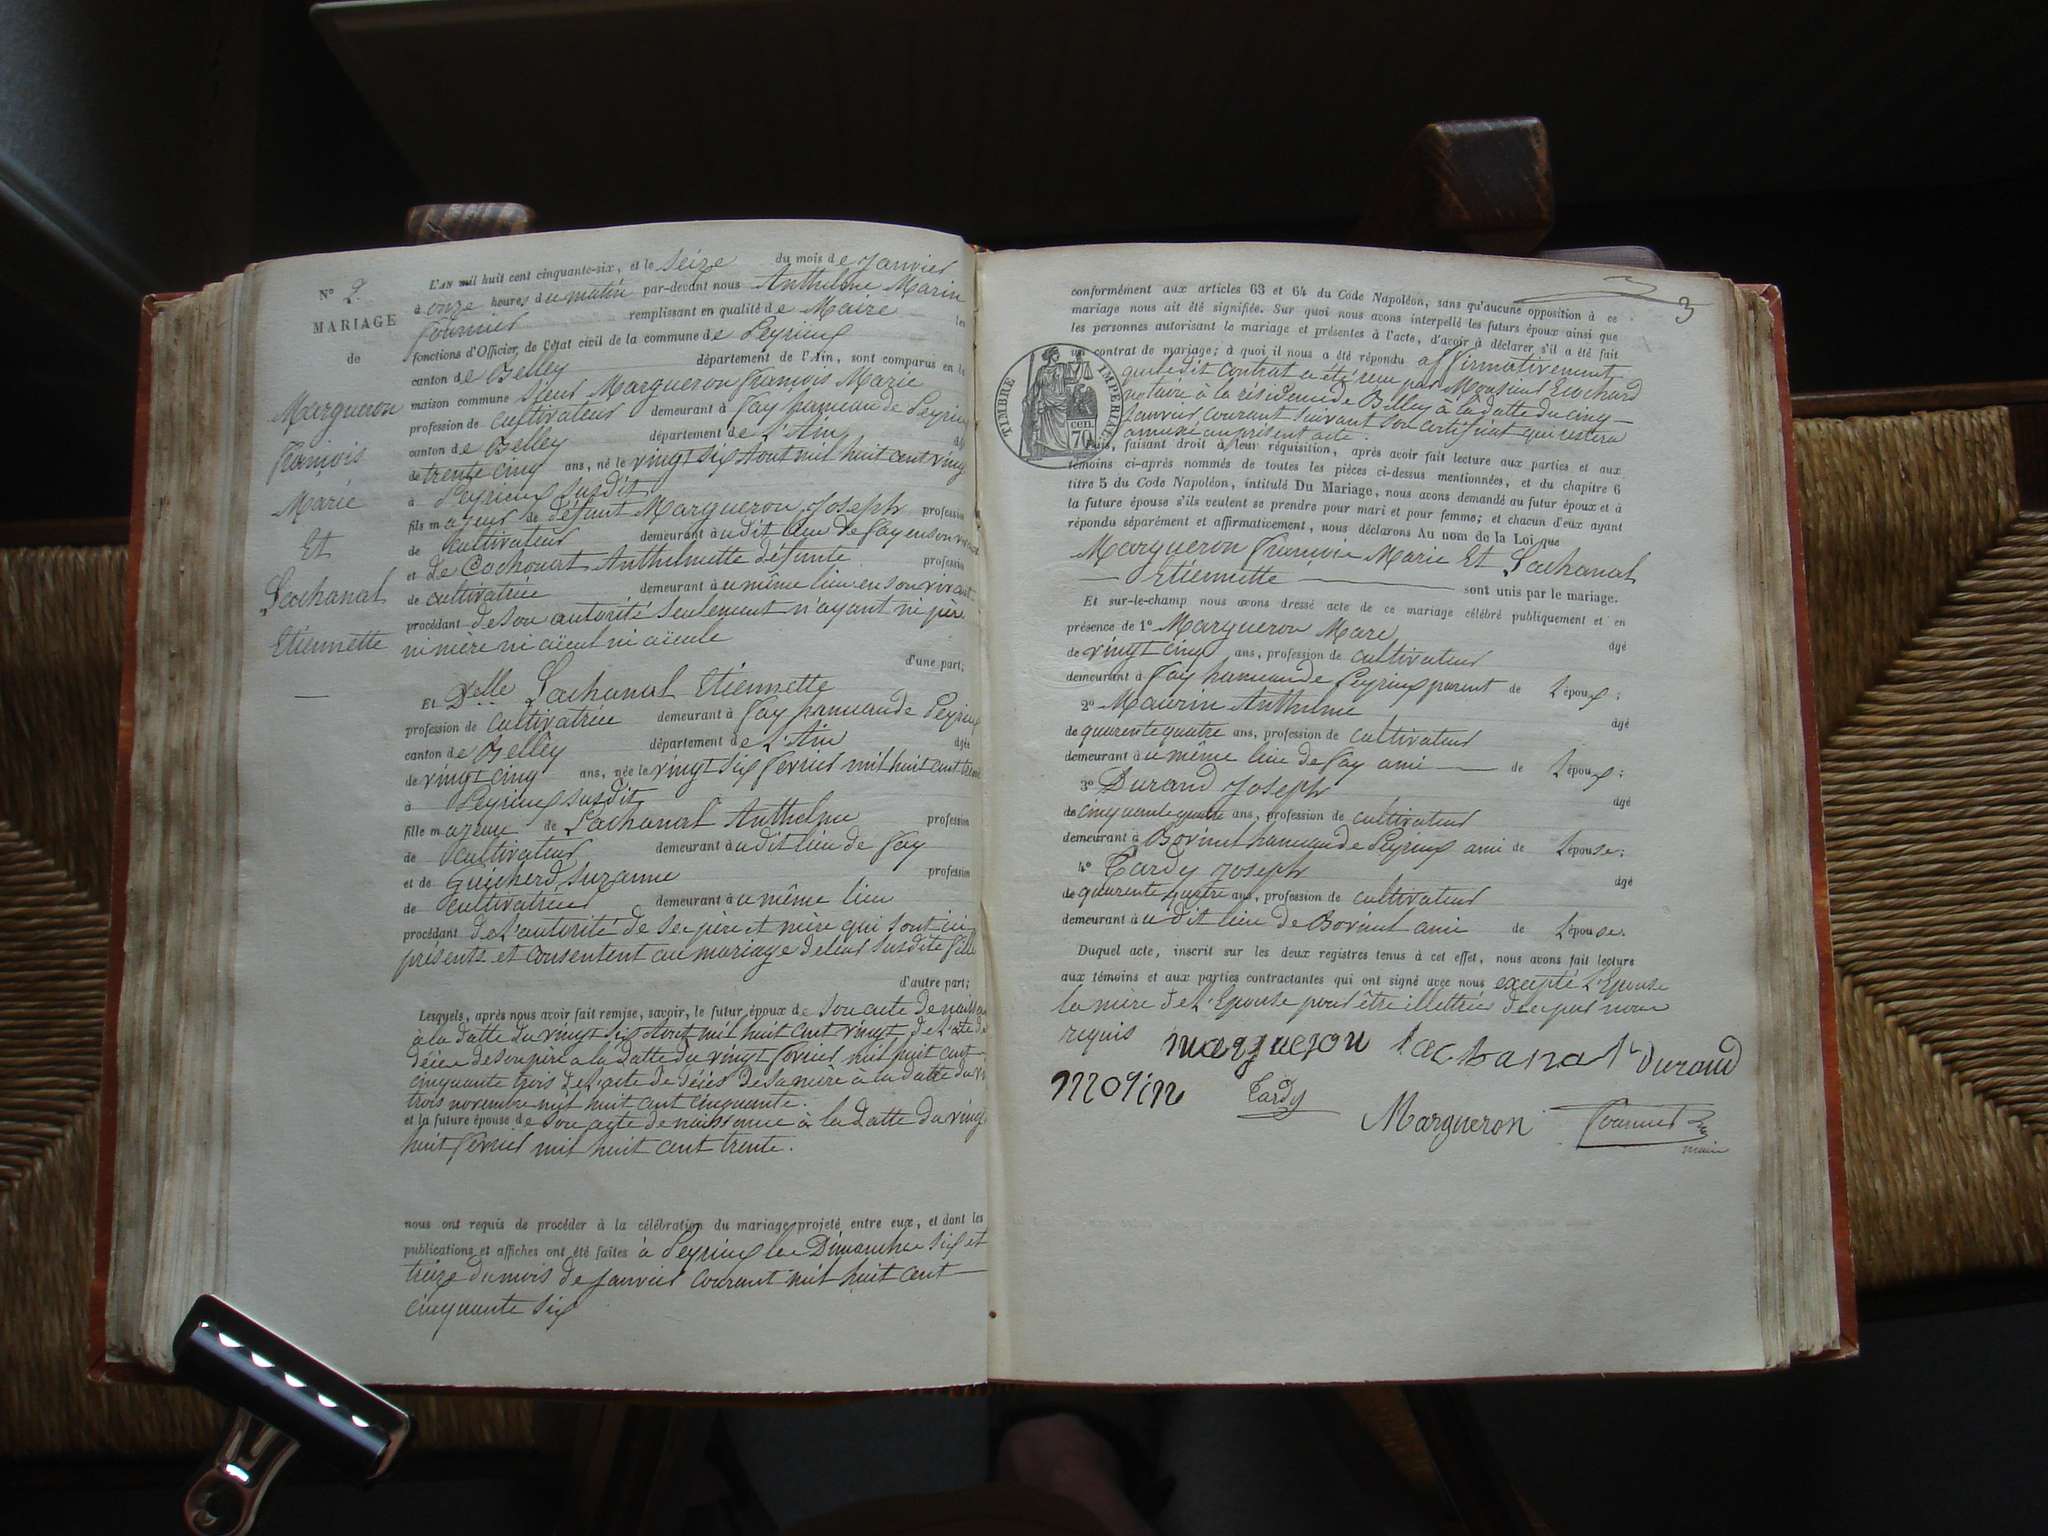 N° 2.
MARIAGE
de
Margueron
François
Marie
Et
Lachanal
Etiennette
L'AN mil huit cent cinquante-six, et le seize du mois de Janvier
à onze heures du matin par-devant nous Anthelme Marin
Fournier remplissant en qualité de Maire les
fonctions d'Officier de l'état civil de la commune de Peyrieux
canton de Belley département de l'Ain, sont comparus en la
maison commune Sieur Margueron François Marie
profession de cultivateur demeurant à Fay hameau de Peyrieux
canton de Belley département de L'Ain âgé
de trente cinq ans, né le vingt six Aout mil huit cent vingt
à Peyrieux susdit
fils majeur de défunt Margueron Joseph profession
de cultivateur demeurant audit lieu de Fay en son vivant
et de Cochonat Anthelmette défunte profession
de cultivatrice demeurant au même lieu en son vivant
procédant de son autorité seulement n'ayant ni père
ni mère ni aïeul ni aïeule
d'une part;
Et Delle Lachanal Etiennette
profession de cultivatrice demeurant à Fay hameau de Peyrieux
canton de Belley département de L'Ain âgée
de vingt cinq ans, née le vingt six Fevrier mil huit cent trente
à Peyrieux susdit
fille majeure de Lachanal Anthelme profession
de cultivateur demeurant audit lieu de Fay
et de Guicherd Suzanne profession
de cultivatrice demeurant au même lieu
procédant de L'autorité de ses père et mère qui sont ici
présents et consentent au mariage de leur susdite fille
d'autre part;
Lesquels, après nous avoir fait remise, savoir, le futur époux de son acte de naissance
à la datte du vingt six Aout mil huit cent vingt, de L'acte de
décès de son père a la datte du vingt Fevrier mil huit cent
cinquante trois de L'acte de décès de sa mère à la datte du
trois novembre mil huit cent cinquante.
et la future épouse de son acte de naissance à la datte du vingt
huit Fevrier mil huit cent trente.
nous ont requis de procéder à la célébration du mariage projeté entre eux, et dont les
publications et affiches ont été faites à Peyrieux les Dimanches six et
treize du mois de Janvier courant mil huit cent
cinquante six
3
conformément aux articles 63 et 64 du Code Napoléon, sans qu'aucune opposition à ce
mariage nous ait été signifiée. Sur quoi nous avons interpellé les futurs époux ainsi que
les personnes autorisant le mariage et présentes à l'acte, d'avoir à déclarer s'il a été fait
un contrat de mariage; à quoi il nous a été répondu affirmativement
que ledit contrat a été reçu par Monsieur Brochard
notaire à la résidence de Belley à la datte du cinq
Janvier courant suivant son certificat qui restera
annexé au présent acte.
TIMBRE IMPÉRIAL
70 CEN.
Puis, faisant droit à leur réquisition, après avoir fait lecture aux parties et aux
témoins ci-après nommés de toutes les pièces ci-dessus mentionnées, et du chapitre 6
titre 5 du Code Napoléon, intitulé Du Mariage, nous avons demandé au futur époux et à
la future épouse s'ils veulent se prendre pour mari et pour femme; et chacun d'eux ayant
répondu séparément et affirmativement, nous déclarons Au nom de la Loi que
Margueron François Marie Et Lachanal
Etiennette sont unis par le mariage.
Et sur-le-champ nous avons dressé acte de ce mariage célébré publiquement et en
présence de 1° Margueron Marc âgé
de vingt cinq ans, profession de cultivateur
demeurant à Fay hameau de Peyrieux parent de l'époux;
2° Maurin Anthelme âgé
de quarente quatre ans, profession de cultivateur
demeurant au même lieu de Fay ami de l'époux;
3° Durand Joseph âgé
de cinquante quatre ans, profession de cultivateur
demeurant à Bovinel hameau de Peyrieux ami de l'épouse;
4° Tardy Joseph âgé
de quarente quatre ans, profession de cultivateur
demeurant audit lieu de Bovinel ami de l'épouse.
Duquel acte, inscrit sur les deux registres tenus à cet effet, nous avons fait lecture
aux témoins et aux parties contractantes qui ont signé avec nous excepté L'Epouse
la mère de L'Epouse pour être illettrées de ce par nous
requis
margueron lachanal Durand
morin Tardy
Margueron Fournier
maire